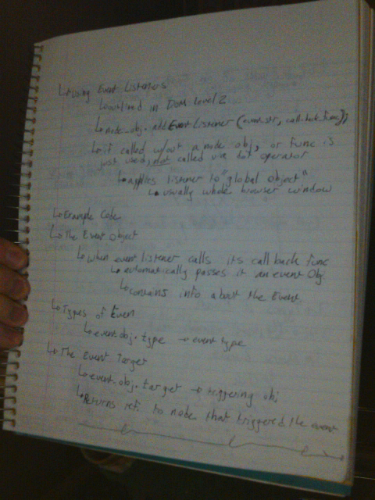 ↳ Using Event Listeners
↳ outlined in Dom Level 2
↳ node_obj.addEventListener(event_str, call_back_func())
↳ if called w/out a node obj, or func is
not used/not called via dot operator
↳ applies listener to "global object"
↳ usually whole browser window
↳ Example Code
↳ The Event Object
↳ when event listener calls its call back func
↳ automatically passes it an event Obj
↳ contains info about the Event
↳ Types of Event
↳ event_obj.type → event type
↳ The Event Target
↳ event_obj.target → triggering obj
↳ Returns ref. to node that triggered the event